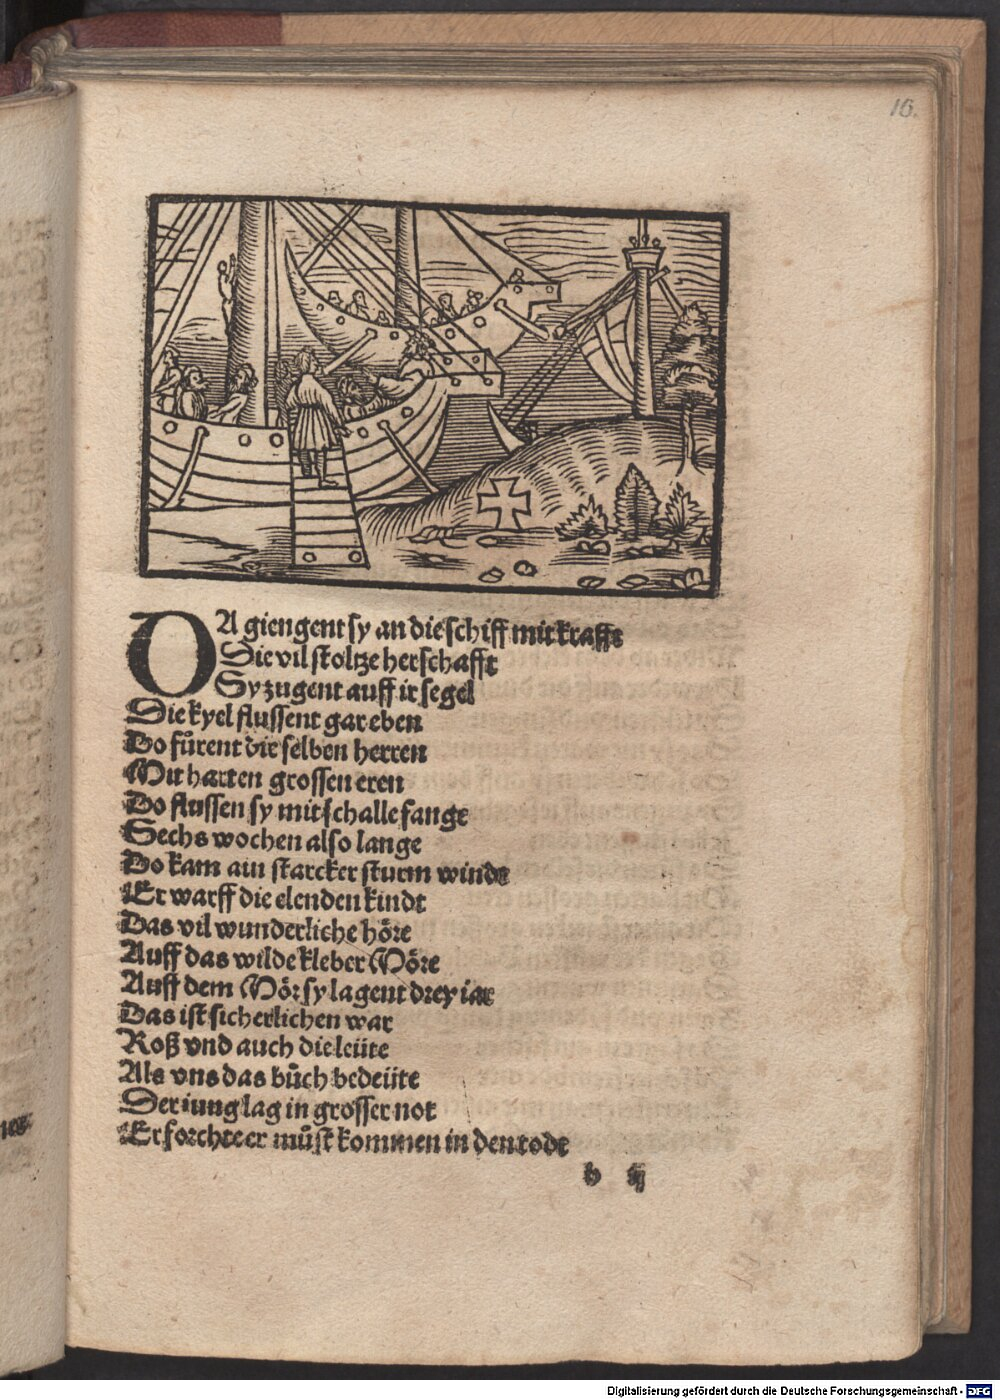 10.
DA giengent sy an die schiff mit krafft
Die vil stoltze herschafft
Sy zugent auff ir segel
Die kyel flussent gar eben
Do fůrent die selben herren
Mit harten grossen eren
Do flussen sy mit schalle fange
Sechs wochen also lange
Do kam ain starcker sturm winde
Er warff die elenden kindt
Das vil wunderliche höre
Auff das wilde kleber Möre
Auff dem Mör sy lagent drey iar
Das ist sicherlichen war
Roß vnd auch die leüte
Als vns das bůch bedeüte
Der iung lag in grosser not
Er forchte er můst kommen in den tode
b ij
Digitalisierung gefördert durch die Deutsche Forschungsgemeinschaft - DFG